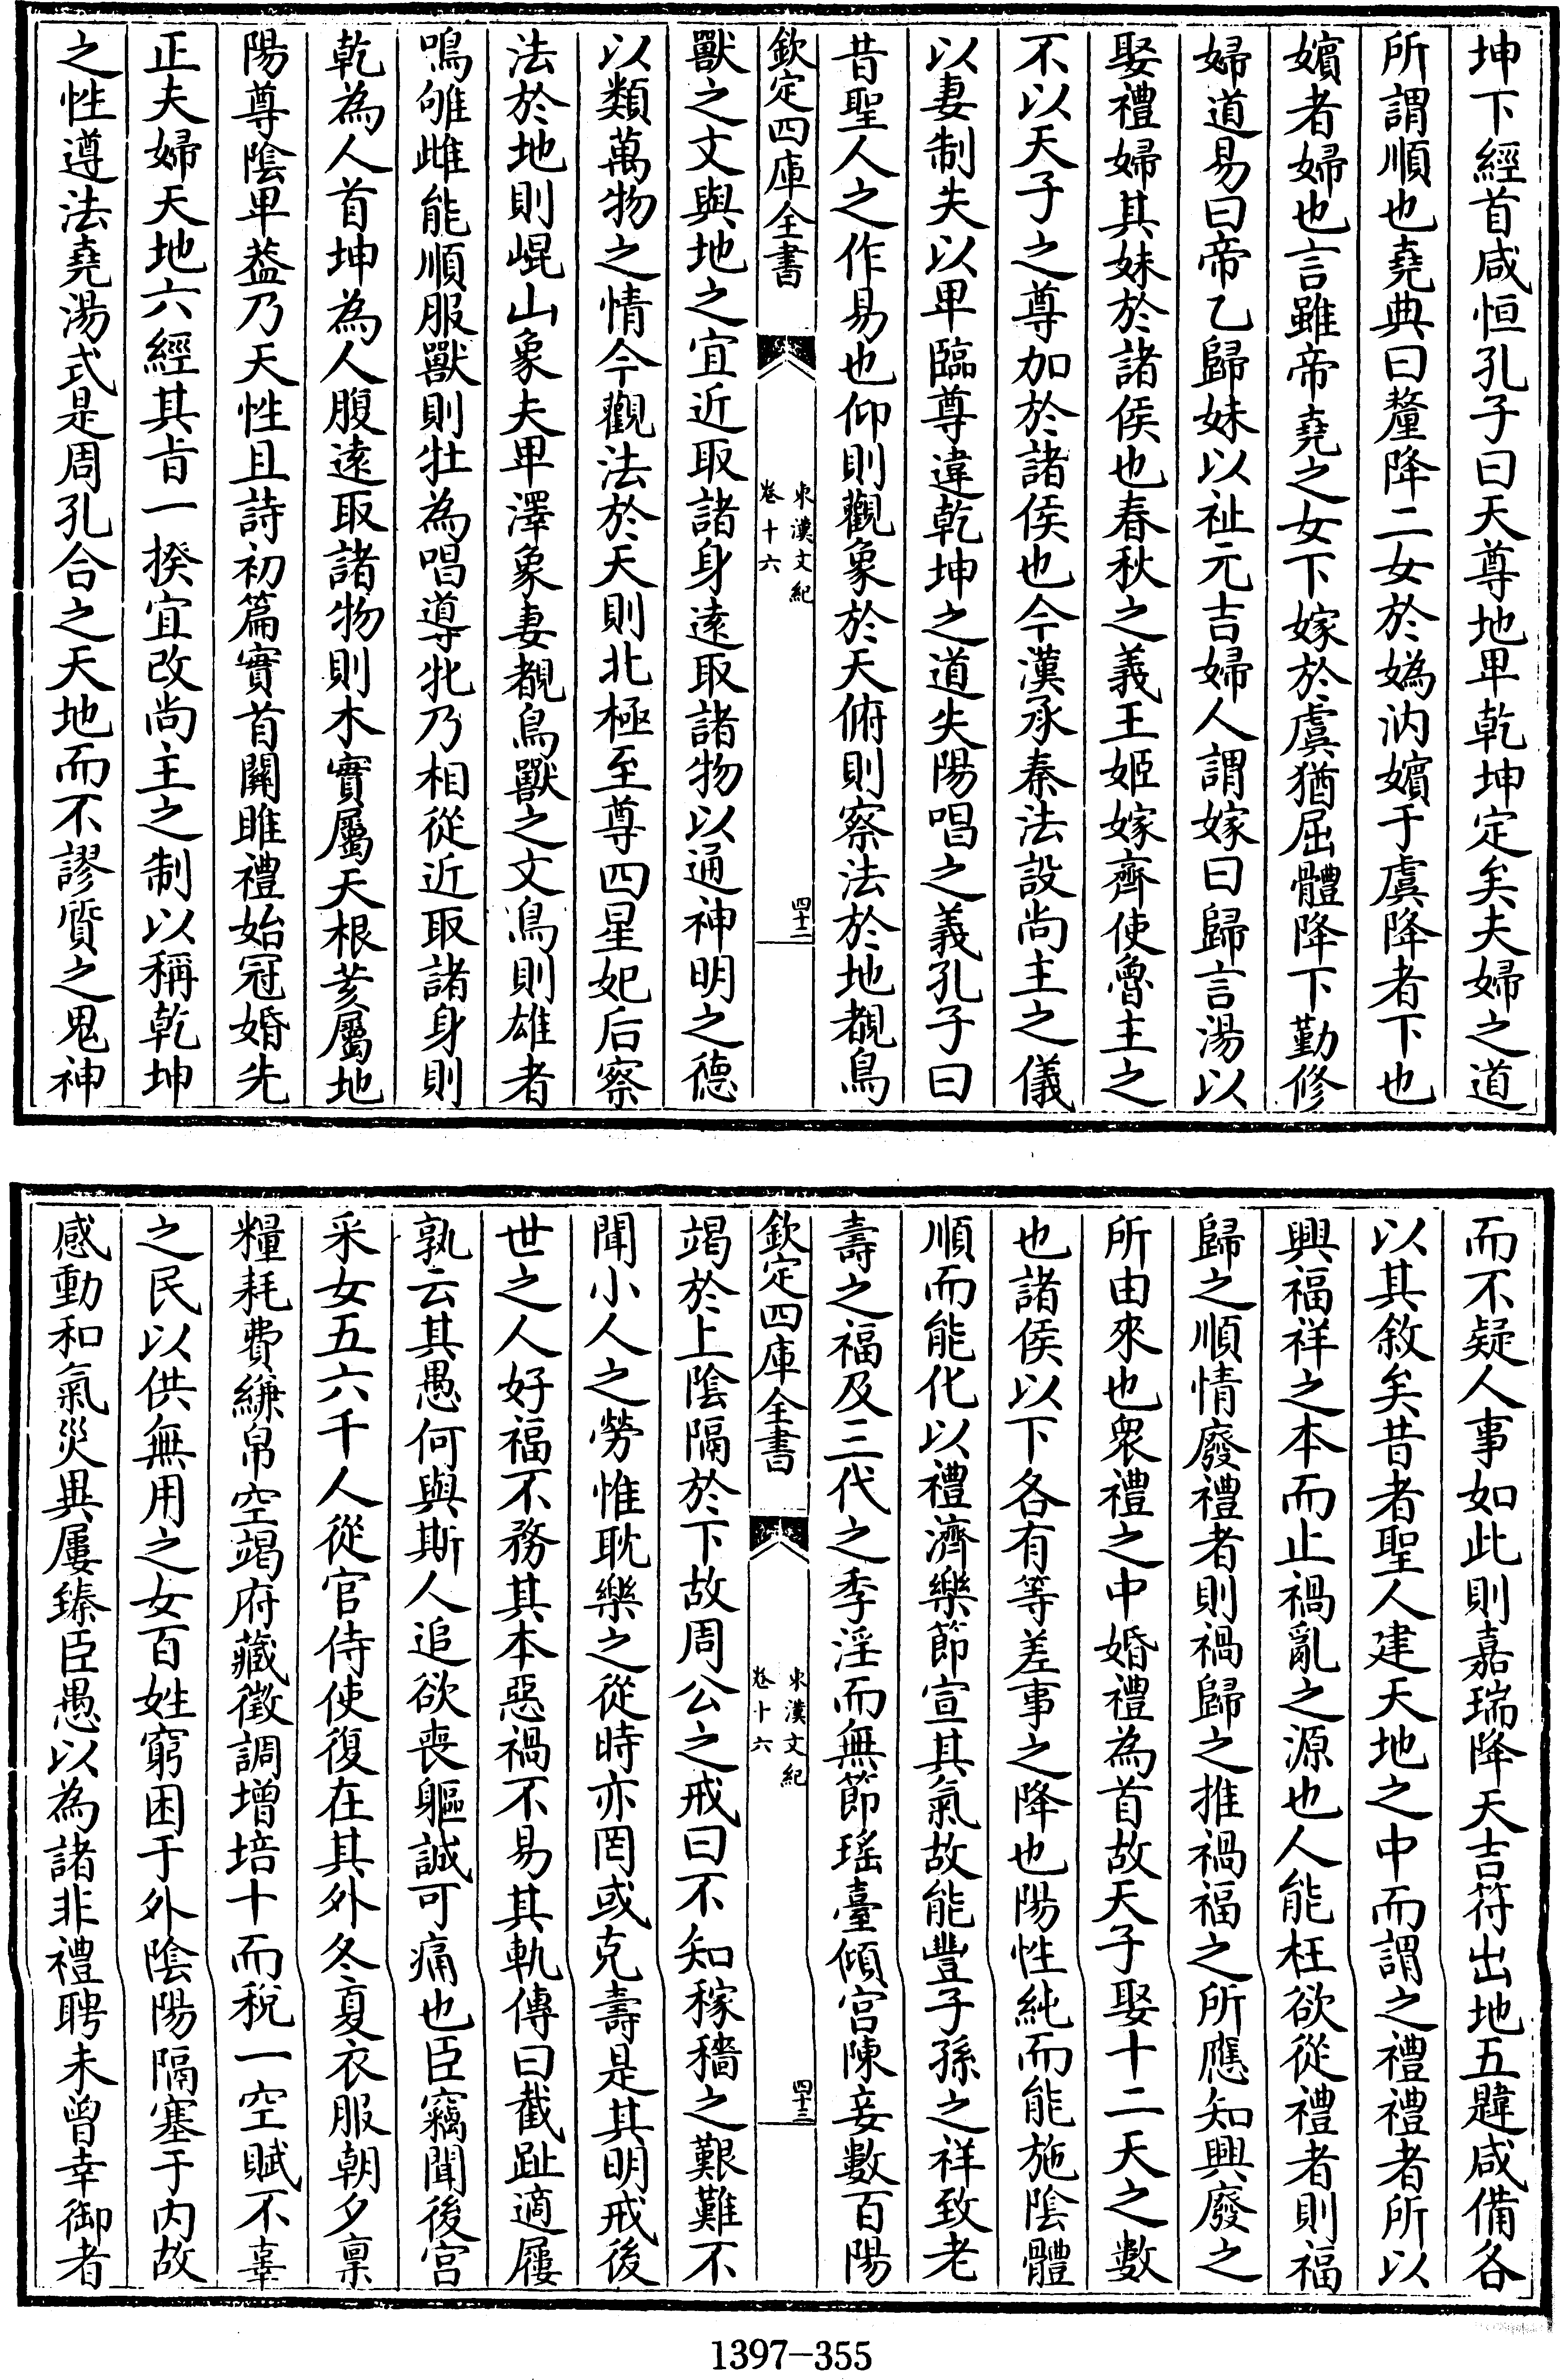 坤下經首咸恒孔子曰天尊地卑乾坤定矣夫婦之道
所謂順也堯典曰釐降二女於媯汭嬪于虞降者下也
嬪者婦也言雖帝堯之女下嫁於虞猶屈體降下勤修
婦道易曰帝乙歸妹以祉元吉婦人謂嫁曰歸言湯以
娶禮婦其妹於諸侯也春秋之義王姬嫁齊使魯主之
不以天子之尊加於諸侯也今漢承秦法設尚主之儀
以妻制夫以卑臨尊違乾坤之道失陽唱之義孔子曰
昔聖人之作易也仰則觀象於天俯則察法於地覩鳥
欽定四庫全書
東漢文紀
卷十六
四十二
獸之文與地之宜近取諸身遠取諸物以通神明之德
以類萬物之情今觀法於天則北極至尊四星妃后察
法於地則崐山象夫卑澤象妻覩鳥獸之文鳥則雄者
鳴鴝雌能順服獸則牡為唱導牝乃相從近取諸身則
乾為人首坤為人腹遠取諸物則木實屬天根荄屬地
陽尊陰卑葢乃天性且詩初篇實首關雎禮始冠婚先
正夫婦天地六經其旨一揆宜改尚主之制以稱乾坤
之性遵法堯湯式是周孔合之天地而不謬質之鬼神
而不疑人事如此則嘉瑞降天吉符出地五韙咸備各
以其敘矣昔者聖人建天地之中而謂之禮禮者所以
興福祥之本而止禍亂之源也人能枉欲從禮者則福
歸之順情廢禮者則禍歸之推禍福之所應知興廢之
所由來也衆禮之中婚禮為首故天子娶十二天之數
也諸侯以下各有等差事之降也陽性純而能施陰體
順而能化以禮濟樂節宣其氣故能豐子孫之祥致老
壽之福及三代之季淫而無節瑤臺傾宮陳妾數百陽
欽定四庫全書
東漢文紀
卷十六
四十三
竭於上陰隔於下故周公之戒曰不知稼穡之艱難不
聞小人之勞惟耽樂之從時亦罔或克壽是其明戒後
世之人好福不務其本惡禍不易其軌傳曰截趾適屨
孰云其愚何與斯人追欲喪軀誠可痛也臣竊聞後宮
采女五六千人從官侍使復在其外冬夏衣服朝夕禀
糧耗費縑帛空竭府藏徵調增培十而稅一空賦不辜
之民以供無用之女百姓窮困于外陰陽隔塞于内故
感動和氣災異屢臻臣愚以為諸非禮聘未曾幸御者
1397-355